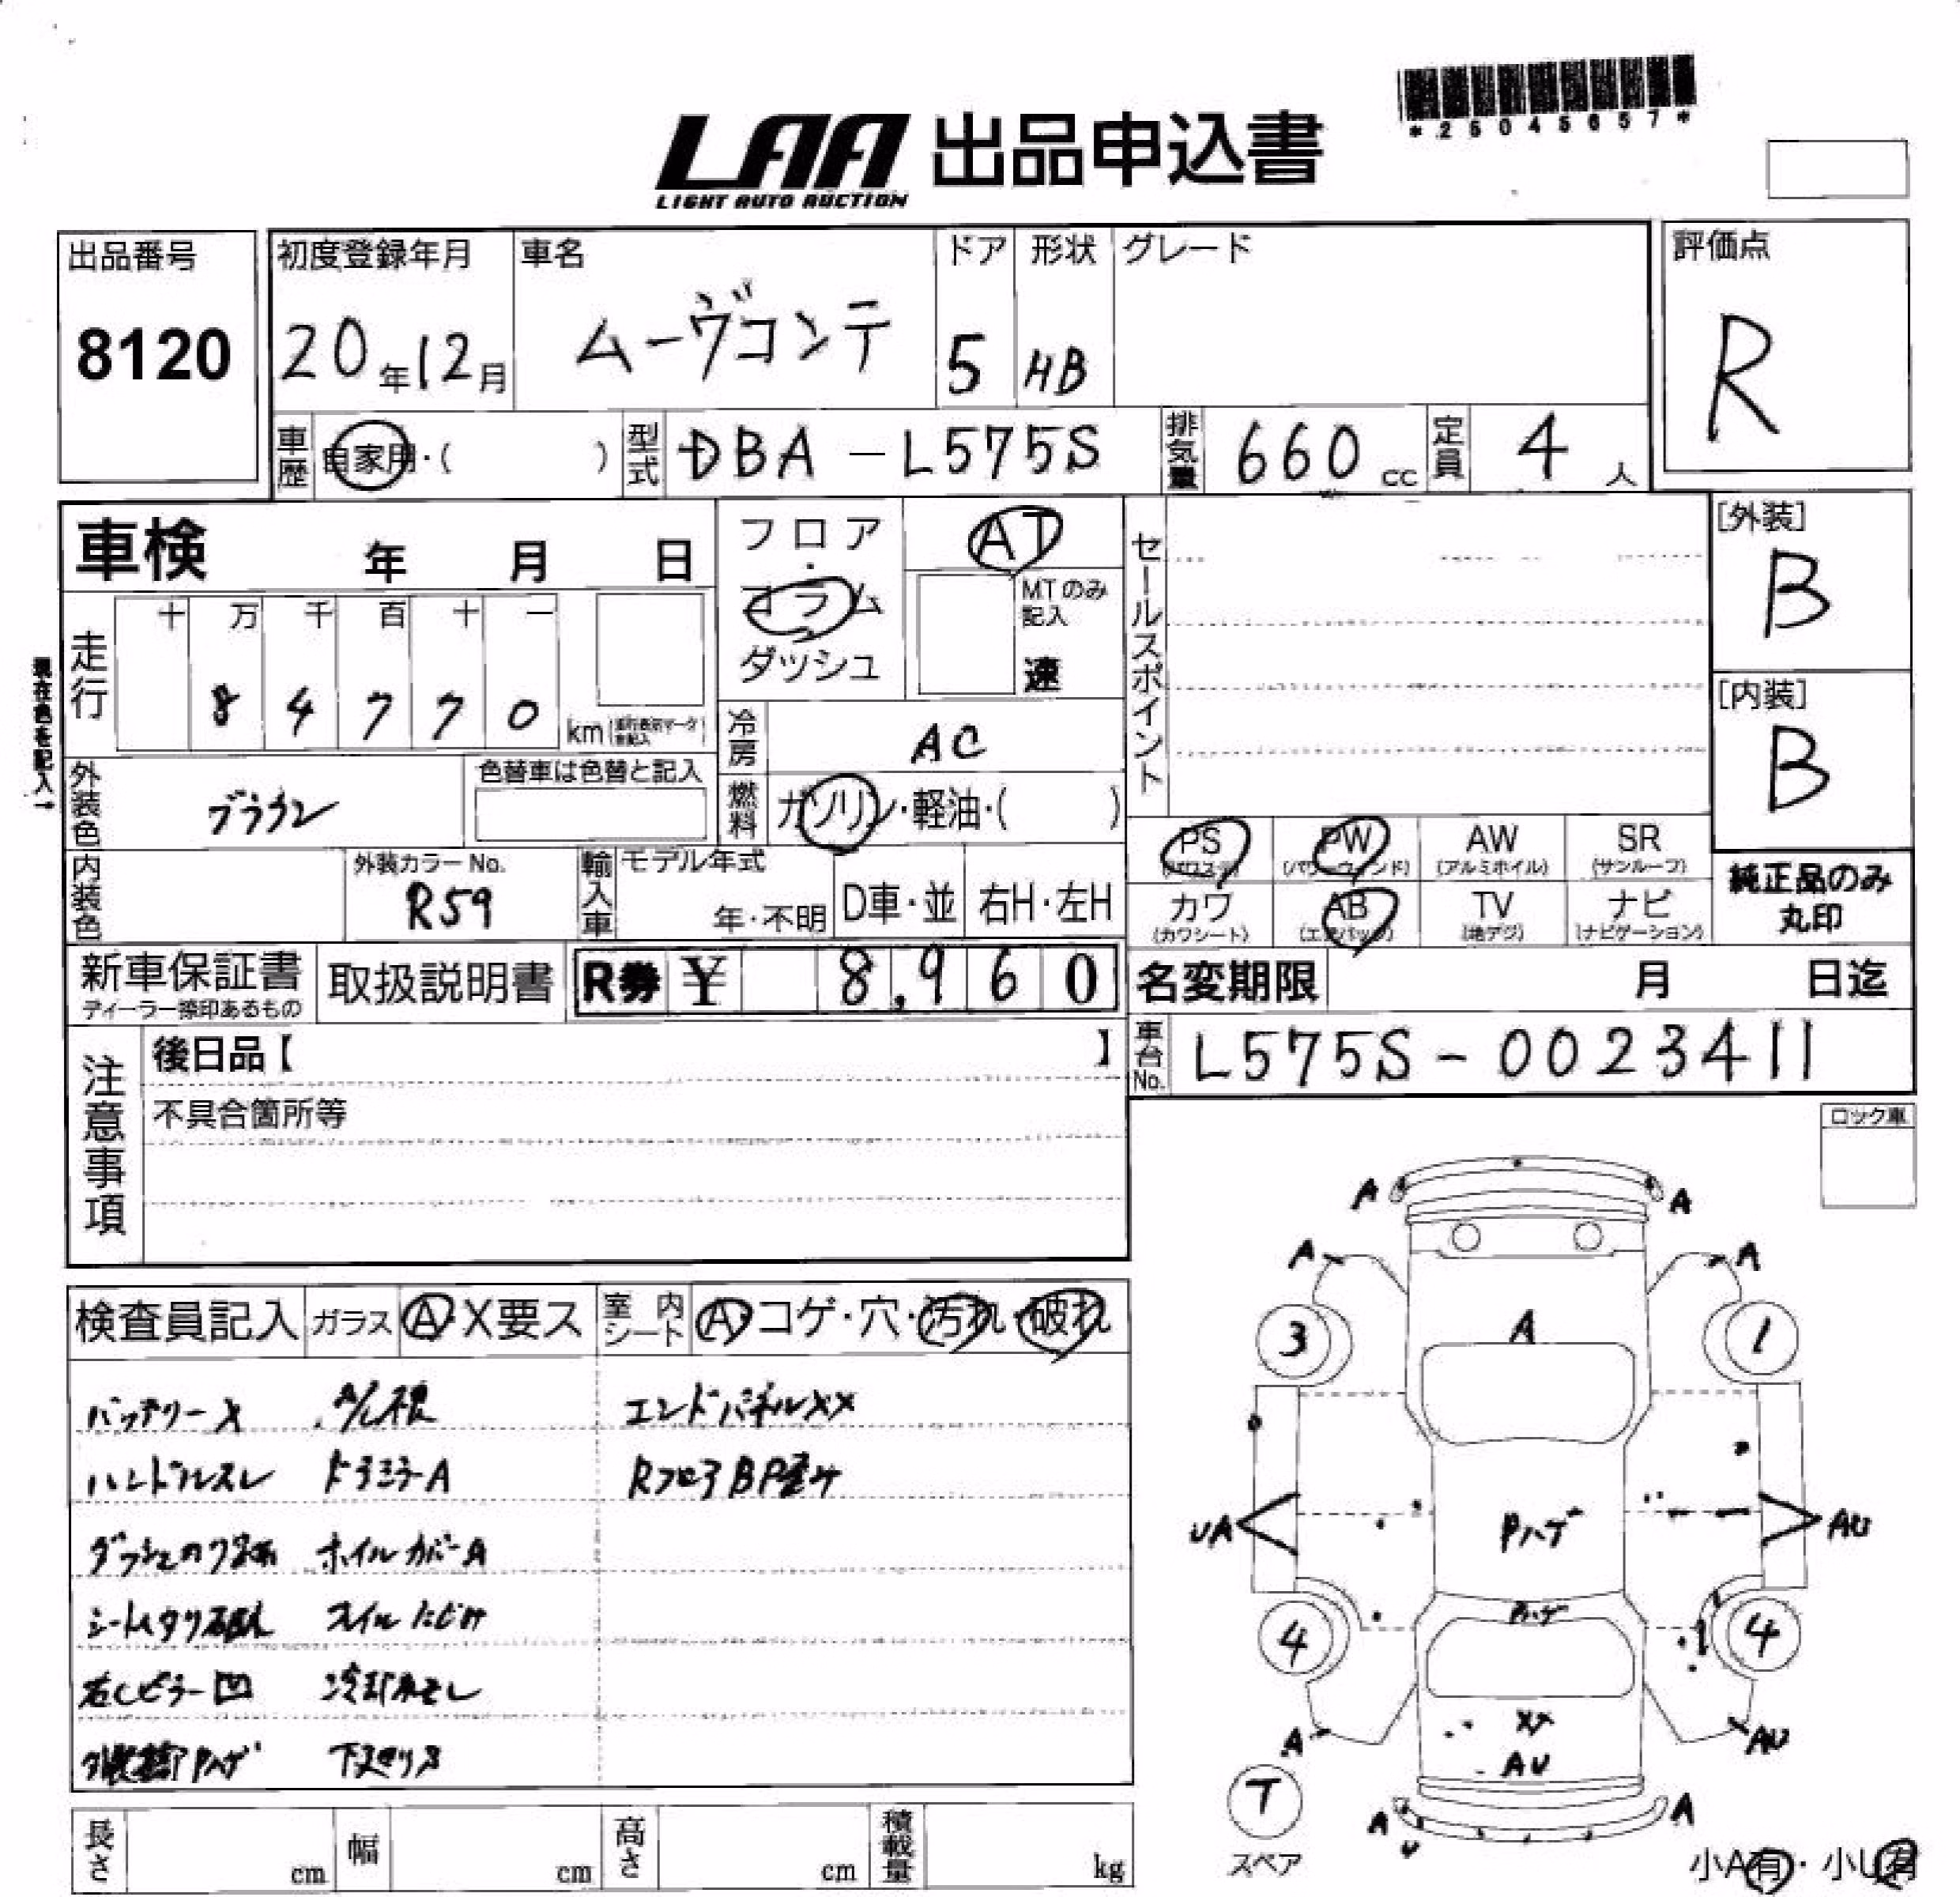 *25045657*
LAA 出品申込書
LIGHT AUTO AUCTION
出品番号
8120
初度登録年月
20年12月
車名
ムーヴコンテ
ドア
5
形状
HB
グレード
評価点
R
車歴 自家用・( )
型式 DBA-L575S
排気量 660cc
定員 4人
車検 年 月 日
フロア・コラム ダッシュ
AT
MTのみ記入
速
セールスポイント
[外装]
B
[内装]
B
現在色を記入→
走行
十 万 千 百 十 一
8 4 7 7 0 km
冷房 AC
外装色 ブラウン
色替車は色替と記入
燃料 ガソリン・軽油・( )
PS (パワステ)
PW (パワーウィンド)
AW (アルミホイル)
SR (サンルーフ)
カワ (カワシート)
AB (エアバッグ)
TV (地デジ)
ナビ (ナビゲーション)
純正品のみ丸印
内装色
外装カラーNo.
R59
輸入車
モデル年式
年・不明
D車・並
右H・左H
新車保証書
ディーラー捺印あるもの
取扱説明書
R券 ¥ 8,960
名変期限 月 日迄
車台No. L575S-0023411
注意事項
後日品【 】
不具合箇所等
ロック車
検査員記入 ガラス A・X要ス
室内シート A・コゲ・穴・汚れ・破れ
バッテリーX
エンドパネルXX
ハンドルスレ ドラミラーA
ホイルカバーA
オイルにじみ
右Cピラー凹
Pハゲ
A A
A A
3 1
A
UA Pハゲ AU
Pハゲ
4 4
XX
A AU AU
T
スペア
A U A
小A有・小U有
長さ cm
幅 cm
高さ cm
積載量 kg